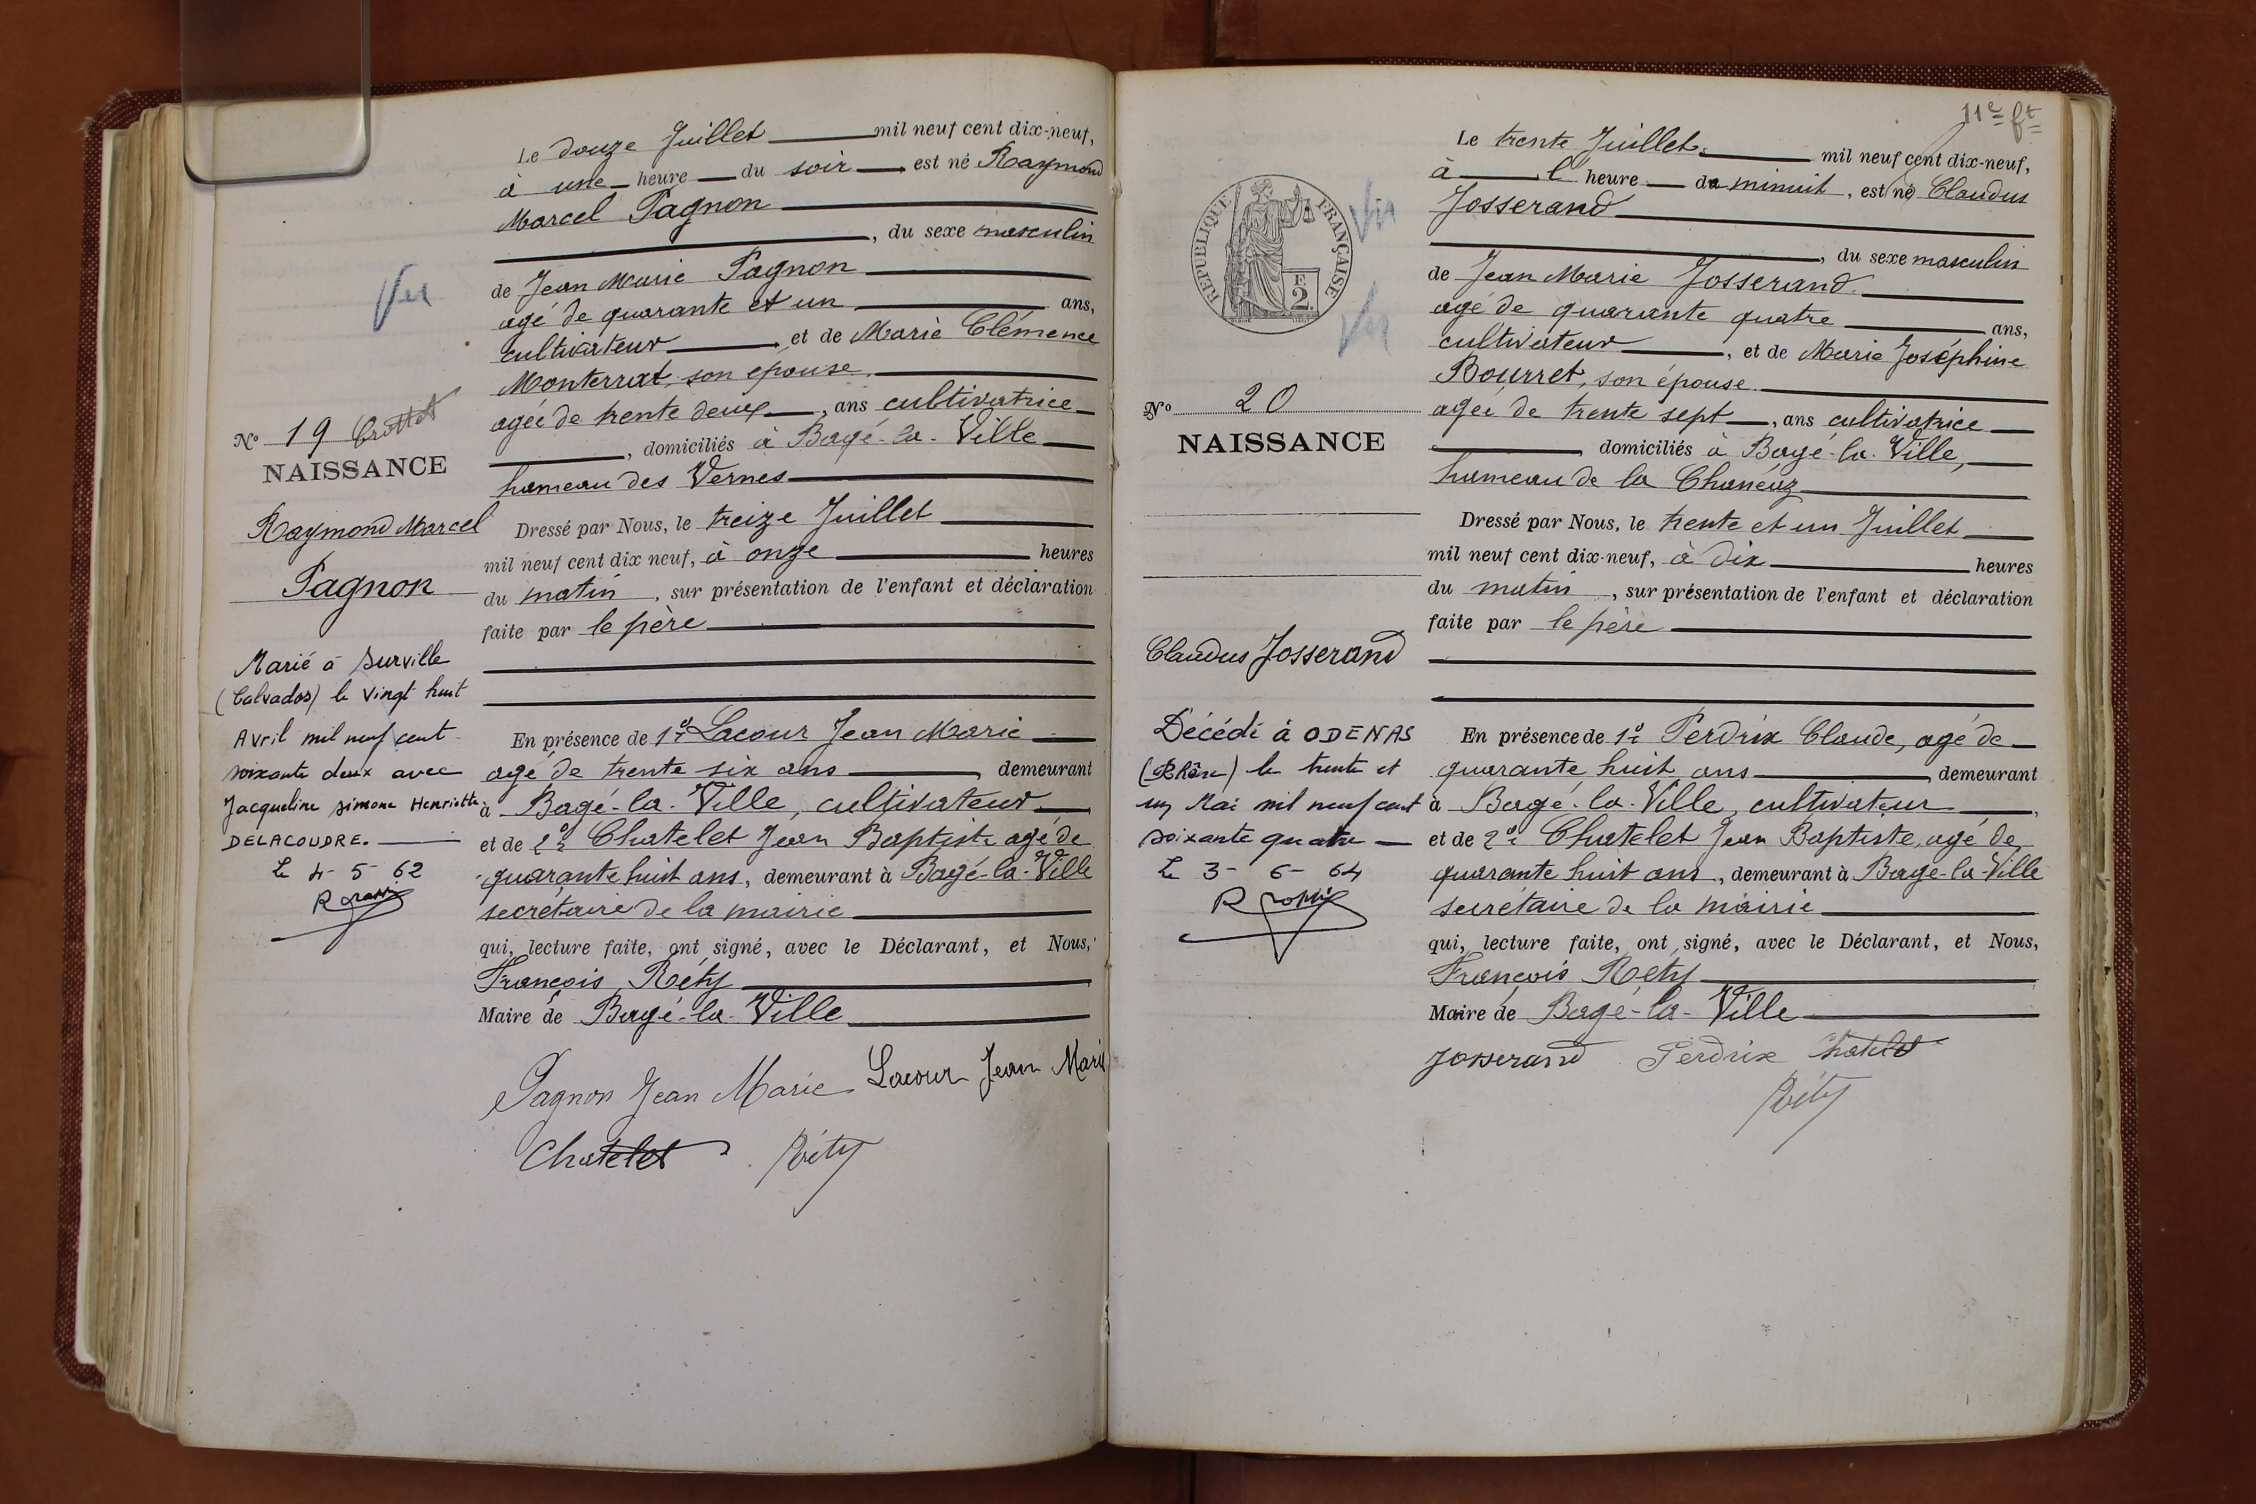 Le douze Juillet mil neuf cent dix-neuf,
à une heure du soir est né Raymond
Marcel Pagnon
, du sexe masculin
de Jean Marie Pagnon
agé de quarante et un ans,
cultivateur et de Marie Clémence
Monterrat, son épouse,
agée de trente deux, ans cultivatrice
, domiciliés à Bagé-la-Ville
hameau des Vernes
Dressé par Nous, le treize Juillet
mil neuf cent dix neuf, à onze heures
du matin, sur présentation de l'enfant et déclaration
faite par le père
En présence de 1º Lacour Jean Marie
agé de trente six ans, demeurant
à Bagé-la-Ville, cultivateur
et de 2º Chatelet Jean Baptiste agé de
quarante huit ans, demeurant à Bagé-la-Ville
secrétaire de la mairie
qui, lecture faite, ont signé, avec le Déclarant, et Nous,
François Réty
Maire de Bagé-la-Ville
Pagnon Jean Marie Lacour Jean Marie
Chatelet Réty
Nº 19 Crottet
NAISSANCE
Raymond Marcel
Pagnon
Marié à Surville
(Calvados) le vingt huit
Avril mil neuf cent
soixante deux avec
Jacqueline Simone Henriette
DELACOUDRE.
Le 4-5-62
11e ft
Le trente Juillet mil neuf cent dix-neuf,
à l heure de minuit, est né Claudus
Josserand
, du sexe masculin
de Jean Marie Josserand
agé de quarante quatre ans,
cultivateur, et de Marie Joséphine
Bourret, son épouse
agée de trente sept, ans cultivatrice
domiciliés à Bagé-la-Ville,
hameau de la Chanéaz
Dressé par Nous, le trente et un Juillet
mil neuf cent dix-neuf, à dix heures
du matin, sur présentation de l'enfant et déclaration
faite par le père
En présence de 1º Perdrix Claude, agé de
quarante huit ans, demeurant
à Bagé-la-Ville, cultivateur,
et de 2º Chatelet Jean Baptiste, agé de
quarante huit ans, demeurant à Bagé-la-Ville
secrétaire de la mairie
qui, lecture faite, ont signé, avec le Déclarant, et Nous,
François Réty
Maire de Bagé-la-Ville
Josserand Perdrix Chatelet
Réty
REPUBLIQUE FRANÇAISE
E
2
Nº 20
NAISSANCE
Claudus Josserand
Décédé à ODENAS
(Rhône) le trente et
un Mai mil neuf cent
soixante quatre
Le 3-6-64